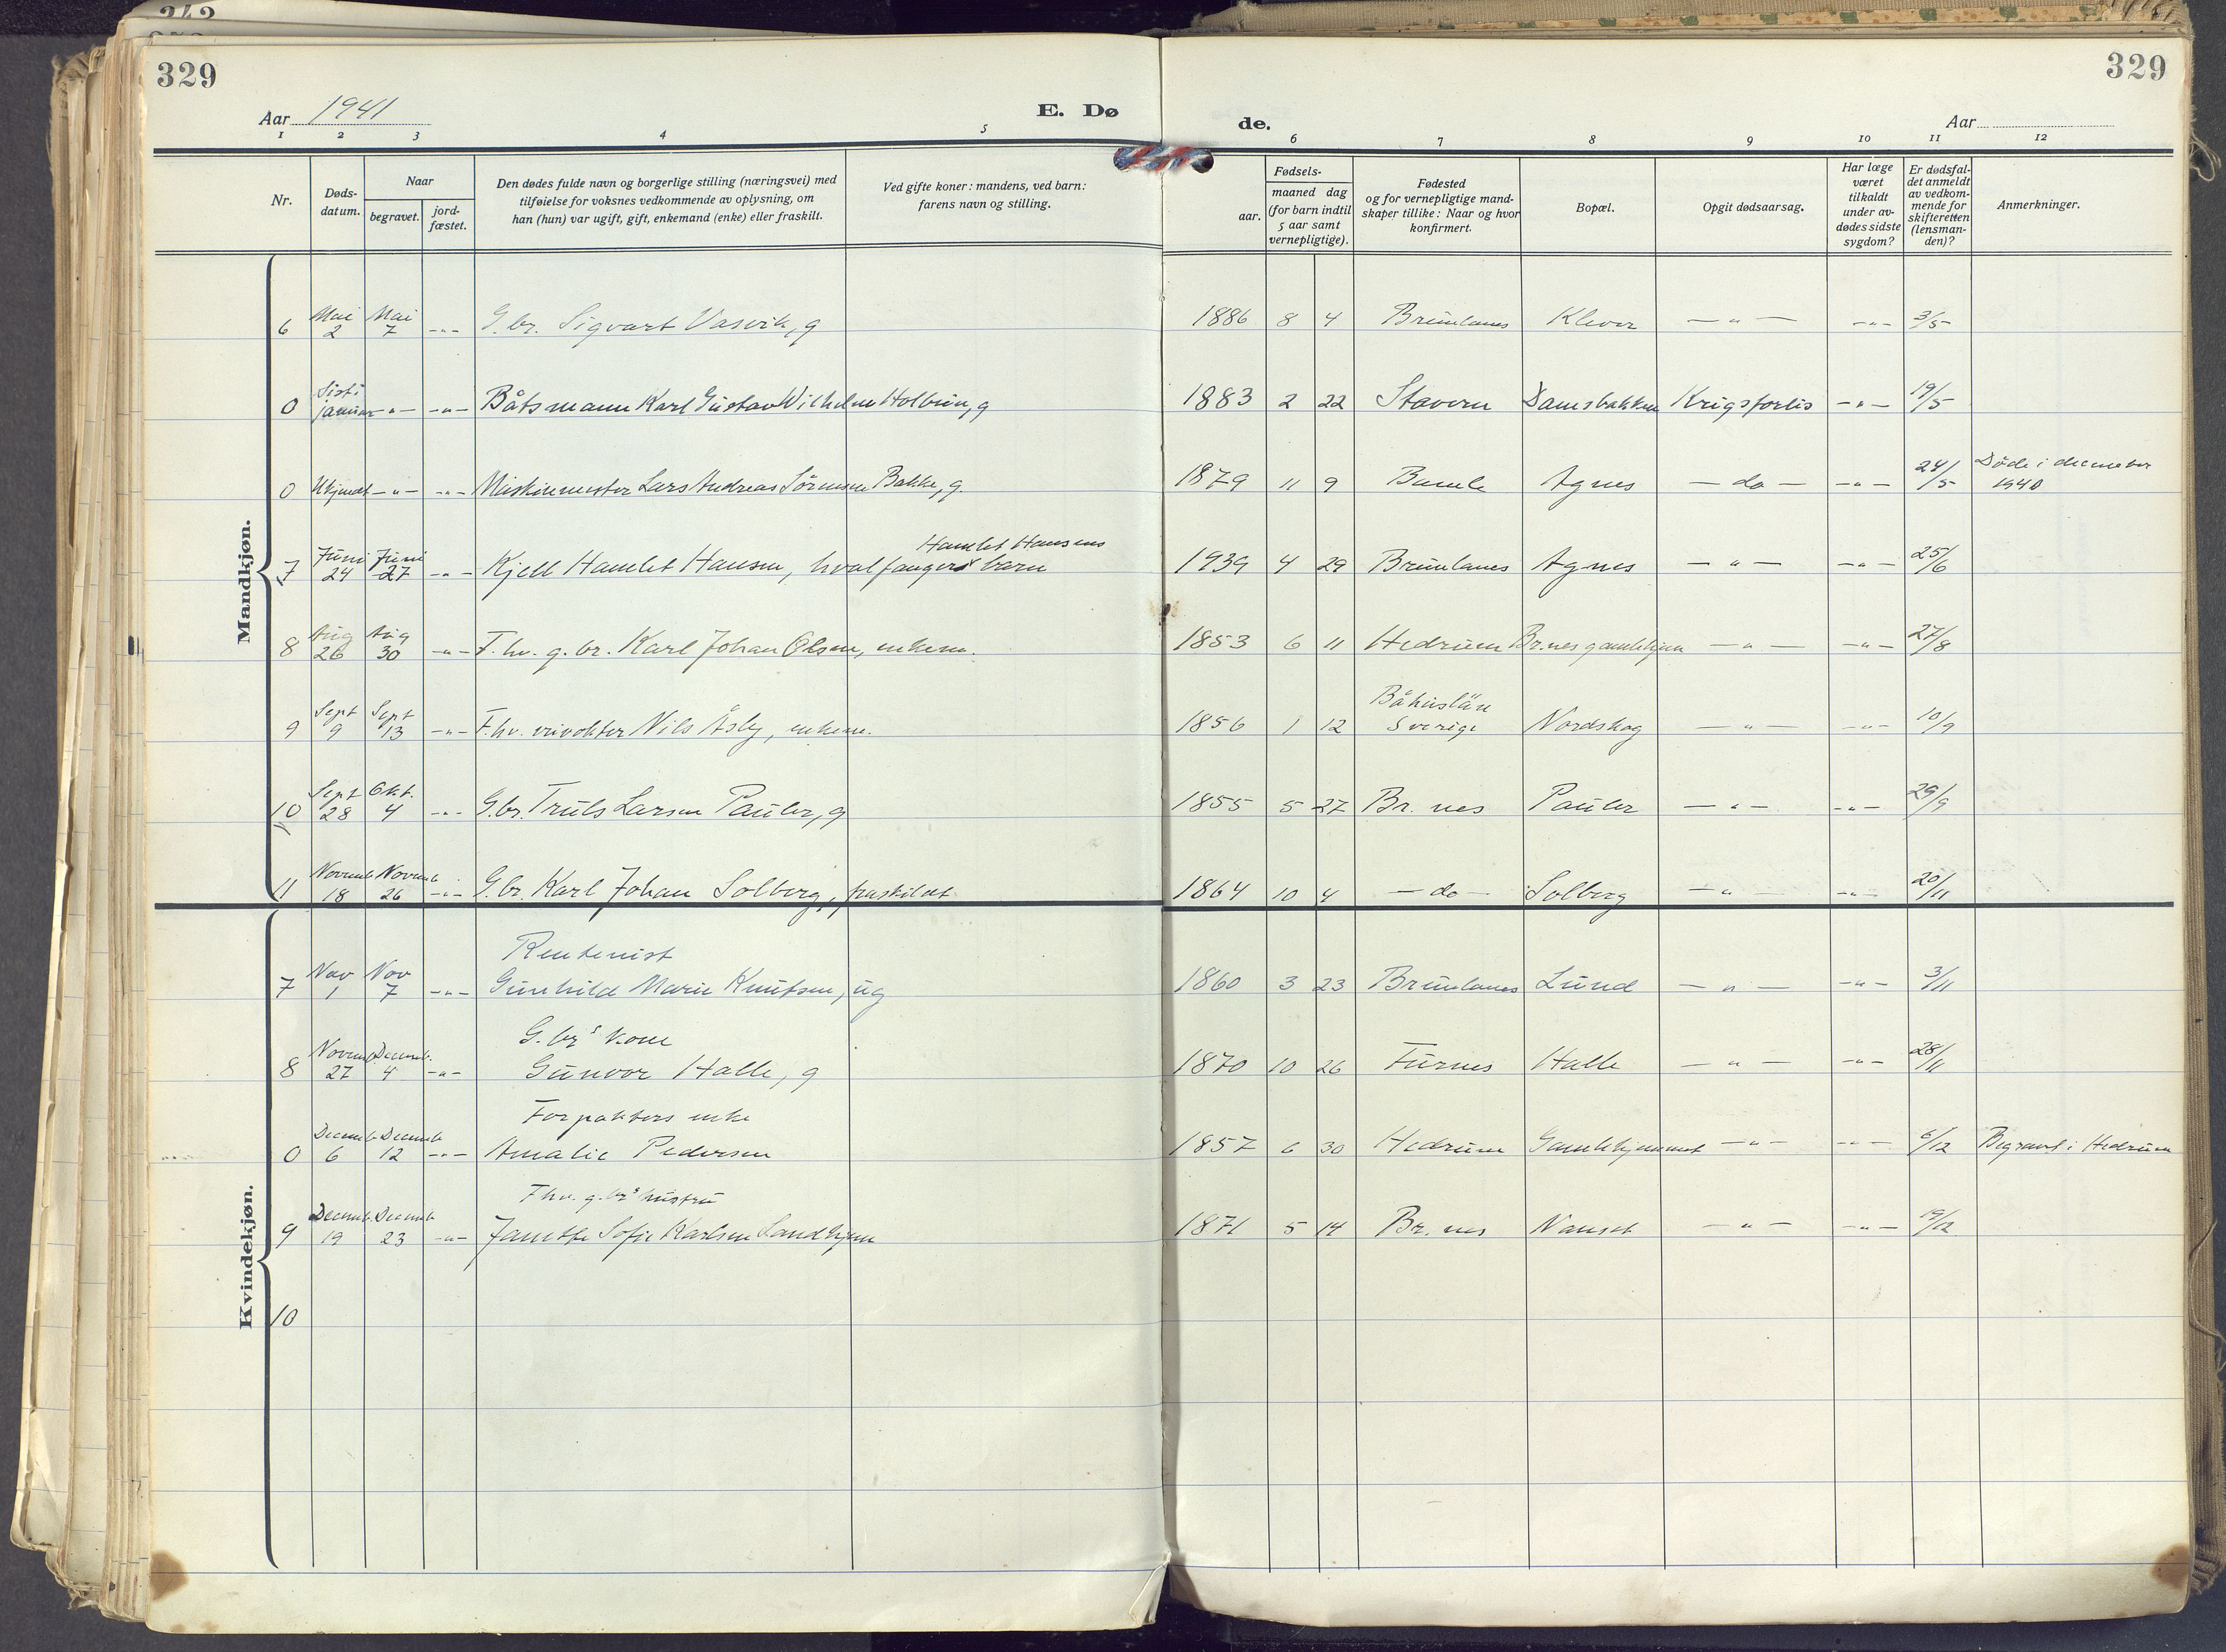 329
329
Aar 1941
E. Dø
de.
Aar
1 2 3 4 5 6 7 8 9 10 11 12
Nr.
Døds-
datum.
Naar
begravet.
jord-
fæstet.
Den dødes fulde navn og borgerlige stilling (næringsvei) med
tilføielse for voksnes vedkommende av oplysning, om
han (hun) var ugift, gift, enkemand (enke) eller fraskilt.
Ved gifte koner: mandens, ved barn:
farens navn og stilling.
Fødsels-
aar.
maaned dag
(for barn indtil
5 aar samt
vernepligtige).
Fødested
og for vernepligtige mand-
skaper tillike: Naar og hvor
konfirmert.
Bopæl.
Opgit dødsaarsag.
Har læge
været
tilkaldt
under av-
dødes sidste
sygdom?
Er dødsfal-
det anmeldt
av vedkom-
mende for
skifteretten
(lensman-
den)?
Anmerkninger.
Mandkjøn.
6 Mai 2 Mai 7 -"- G.br. Sigvart Vasvik, g 1886 8 4 Brunlanes Klever -"- -"- 3/5
0 Sist i januar -"- -"- Båtsmann Karl Gustav Wilhelm Holbun, g 1883 2 22 Stavern Damsbakken Krigsforlis -"- 19/5
0 Ukjendt -"- -"- Maskinmester Lars Andreas Sörensen Bakke, g. 1879 11 9 Bamle Agnes - do - -"- 24/5 Døde i december 1940
7 Juni 24 Juni 27 -"- Kjell Hamlet Hansen, hvalfanger Hamlet Hansens barn 1939 4 29 Brunlanes Agnes -"- -"- 25/6
8 Aug 26 Aug 30 -"- F.hv. g.br. Karl Johan Olsen, enkem. 1853 6 11 Hedrum Br.nes gamlehjem -"- -"- 27/8
9 Sept 9 Sept 13 -"- F.hv. Nils Åsly, enkem. 1856 1 12 Båhuslän Sverige Nordskog -"- -"- 10/9
10 Sept 28 Okt. 4 -"- G.br. Truls Larsen Pauler, g 1855 5 27 Br.nes Pauler -"- -"- 29/9
11 Novemb 18 Novemb 26 -"- G.br. Karl Johan Solberg, fraskildt 1864 10 4 - do - Solberg -"- -"- 20/11
Kvindekjøn.
7 Nov 1 Nov 7 -"- Rentenist Gunhild Marie Knutsen, ug 1860 3 23 Brunlanes Lund -"- -"- 3/11
8 Novemb 27 Decemb. 4 -"- G.brs kone Gunvor Halle, g 1870 10 26 Furnes Halle -"- -"- 28/11
0 Decemb 6 Decemb 12 -"- Forpakters enke Amalie Pedersen 1857 6 30 Hedrum Gamlehjemmet -"- -"- 6/12 Begravet i Hedrum
9 Decemb. 19 Decemb 23 -"- F.hv. g.brs hustru Janette Sofie Karlsen Sandhjem 1871 5 14 Br.nes Nanset -"- -"- 19/12
10